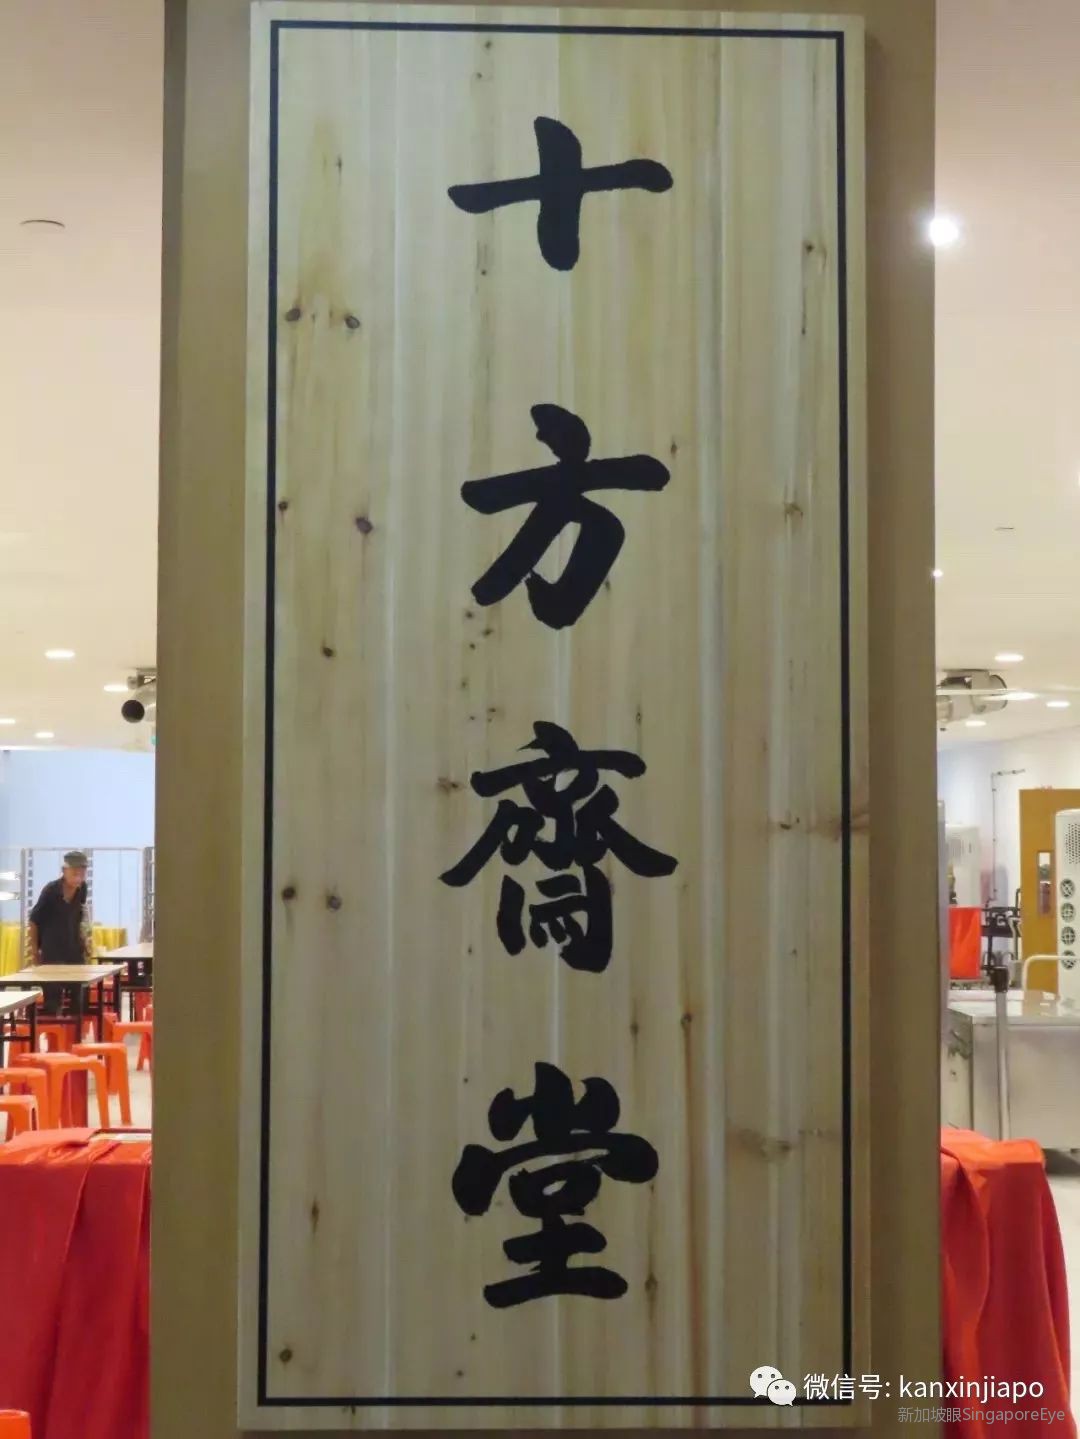 十方齋堂
微信号: kanxinjiapo
新加坡眼SingaporeEye